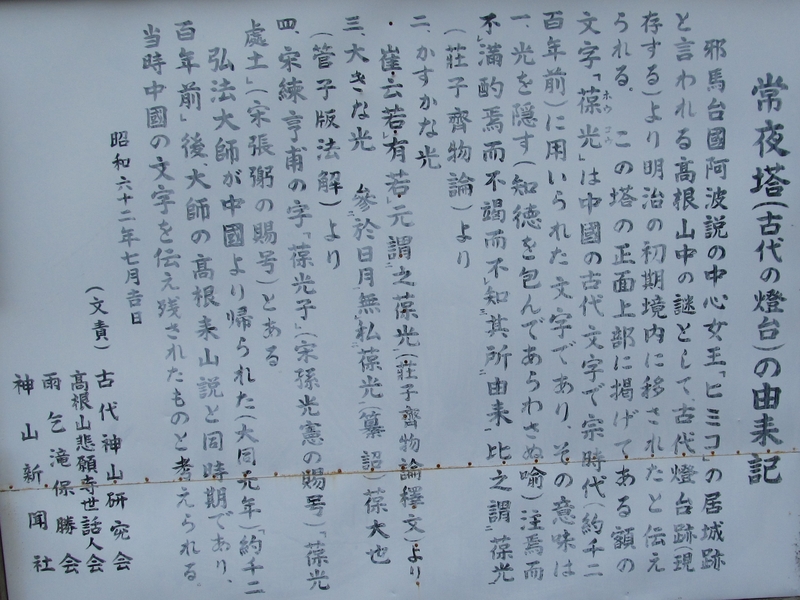 常夜塔(古代の燈台)の由来記
邪馬台國阿波説の中心女王「ヒミコ」の居城跡
と言われる高根山中の謎として、古代燈台跡(現
存する)より明治の初期境内に移されたと伝え
られる。この塔の正面上部に掲げてある額の
文字「葆光」は中國の古代文字で宗時代(約千二
ホウ コウ
百年前)に用いられた文字であり、その意味は
一、光を隠す(知徳を包んであらわさぬ喩)注焉而
不満酌焉而不竭而不知其所由来比之謂葆光
(莊子齊物論)より
二、かすかな光
崔云若有若元謂之葆光(莊子齊物論釋文)より
三、大きな光 參於日月無私葆光(纂詔)葆大也
(管子版法解)より
四、宋練亨甫の字「葆光子」(宋孫光憲の賜号)「葆光
處土」(宋張弼の賜号)とある
弘法大師が中國より帰られた(大同元年)「約千二
百年前」後大師の高根来山説と同時期であり、
当時中國の文字を伝え残されたものと考えられる。
昭和六十二年七月吉日
(文責)古代神山研究会
高根山悲願寺世話人会
雨乞滝保勝会
神山新聞社